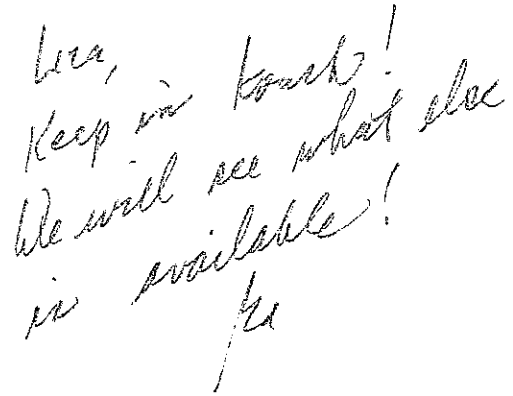 Keep in touch!
We will see what else
is available!